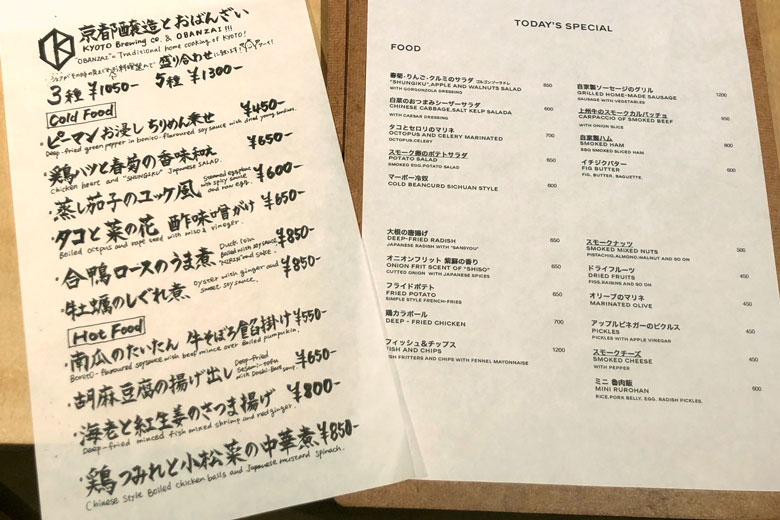 京都醸造とおばんざい
KYOTO Brewing co. & OBANZAI!!!
"OBANZAI" = Traditional home cooking of KYOTO!
盛り合わせ
3種 ¥1050- 5種 ¥1300-
Cold Food
・ピーマンお浸し ちりめん乗せ ¥450-
Deep-fried green pepper in bonito-flavoured soy sauce with dried young sardines.
・鶏ハツと春菊の香味和え ¥650-
Chicken heart and "SHUNGIKU" Japanese SALAD.
・蒸し茄子のユッケ風 Steamed eggplant with spicy sauce and raw egg. ¥600-
・タコと菜の花 酢味噌がけ ¥650-
Boiled octpus and rape seed with miso & vinegar.
・合鴨ロースのうま煮 Duck loin Boiled with soy sauce and sake. ¥850-
・牡蠣のしぐれ煮 Oyster with ginger and sweet soy sauce. ¥850-
Hot Food
・南瓜のたいたん 牛そぼろ餡掛け ¥550-
Bonito-flavoured soysauce with beef mince over boiled pumpukin.
・胡麻豆腐の揚げ出し Deep-fried Sesami-tofu with Dashi-Based sauce. ¥650-
・海老と紅生姜のさつま揚げ ¥800-
Deep-fried minced fish mixed shrimp and red ginger.
・鶏つみれと小松菜の中華煮 ¥850-
Chinese Style Boiled chicken balls and Japanese mustard spinach.
TODAY'S SPECIAL
FOOD
春菊・りんご・クルミのサラダ ゴルゴンゾーラドレ
"SHUNGIKU",APPLE AND WALNUTS SALAD 850
WITH GORGONZOLA DRESSING
白菜のおつまみシーザーサラダ
CHINESE CABBAGE,SALT KELP SALADA 600
WITH CAESAR DRESSING
タコとセロリのマリネ
OCTOPUS AND CELERY MARINATED 700
OCTOPUS,CELERY
スモーク卵のポテトサラダ
POTATO SALAD 650
SMOKED EGG,POTATO SALAD
マーボー冷奴
COLD BEANCURD SICHUAN STYLE 600
大根の唐揚げ
DEEP-FRIED RADISH 550
JAPANESE RADISH WITH "SANSYOU"
オニオンフリット 紫蘇の香り
ONION FRIT SCENT OF "SHISO" 650
CUTTED ONION WITH JAPANESE SPICES
フライドポテト
FRIED POTATO 650
SIMPLE STYLE FRENCH-FRIES
鶏カラボール
DEEP - FRIED CHICKEN 700
フィッシュ&チップス
FISH AND CHIPS 1200
FISH FRITTERS AND CHIPS WITH FENNEL MAYONNAISE
自家製ソーセージのグリル
GRILLED HOME-MADE SAUSAGE 1200
SAUSAGE WITH VEGETABLES
上州牛のスモークカルパッチョ
CARPACCIO OF SMOKED BEEF 950
WITH ONION SLICE
自家製ハム
SMOKED HAM 800
BBQ SMOKED SLICED HAM
イチジクバター
FIG BUTTER 600
FIG, BUTTER, BAGUETTE.
スモークナッツ
SMOKED MIXED NUTS 500
PISTACHIO,ALMOND,WALNUT AND SO ON
ドライフルーツ
DRIED FRUITS 450
FIGS,RAISINS AND SO ON
オリーブのマリネ
MARINATED OLIVE 450
アップルビネガーのピクルス
PICKLES 450
PICKLES WITH APPLE VINEGAR
スモークチーズ
SMOKED CHEESE 450
WITH PEPPER
ミニ 魯肉飯
MINI RUROHAN
RICE,PORK BELLY, EGG, RADISH PICKLES.